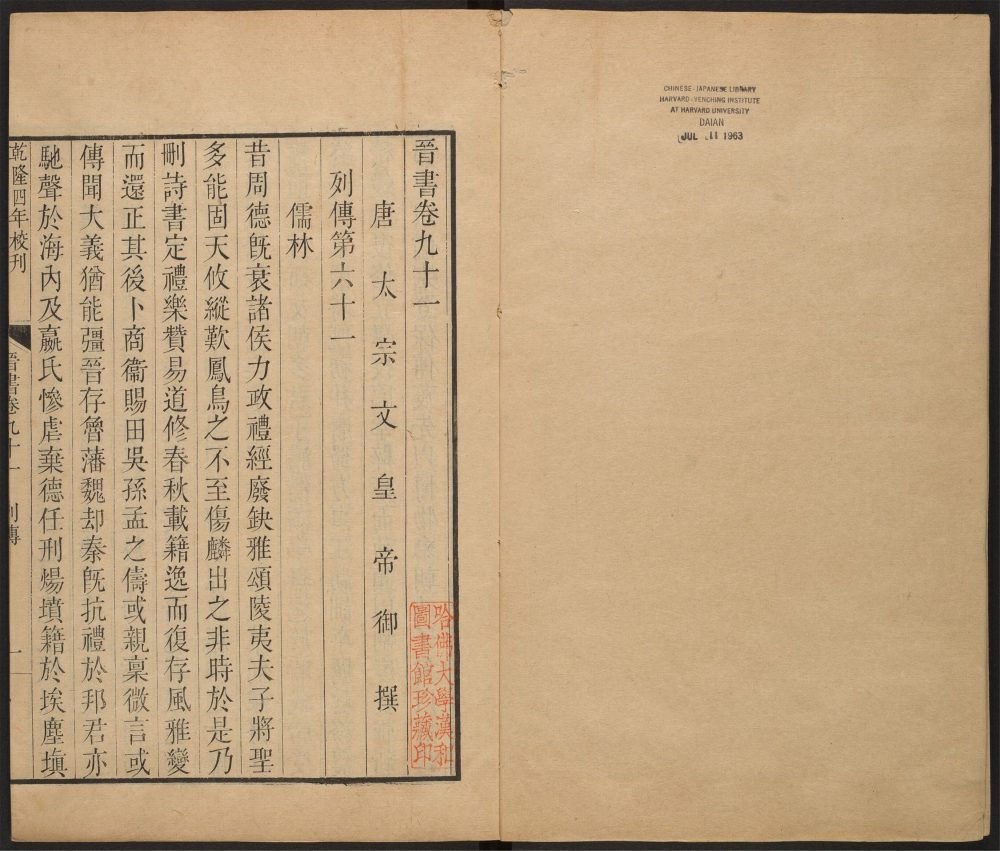 CHINESE-JAPANESE LIBRARY
HARVARD-YENCHING INSTITUTE
AT HARVARD UNIVERSITY
DAIAN
JUL 11 1963
晉書卷九十一
唐太宗文皇帝御撰
列傳第六十一
儒林
昔周德旣衰諸侯力政禮經廢缺雅頌陵夷夫子將聖
多能固天攸縱歎鳳鳥之不至傷麟出之非時於是乃
刪詩書定禮樂贊易道修春秋載籍逸而復存風雅變
而還正其後卜商衞賜田吳孫孟之儔或親稟微言或
傳聞大義猶能彊晉存魯藩魏却秦旣抗禮於邦君亦
馳聲於海內及嬴氏慘虐棄德任刑煬墳籍於埃塵塡
乾隆四年校刊
晉書卷九十一 列傳
一
哈佛大學漢和
圖書館珍藏印